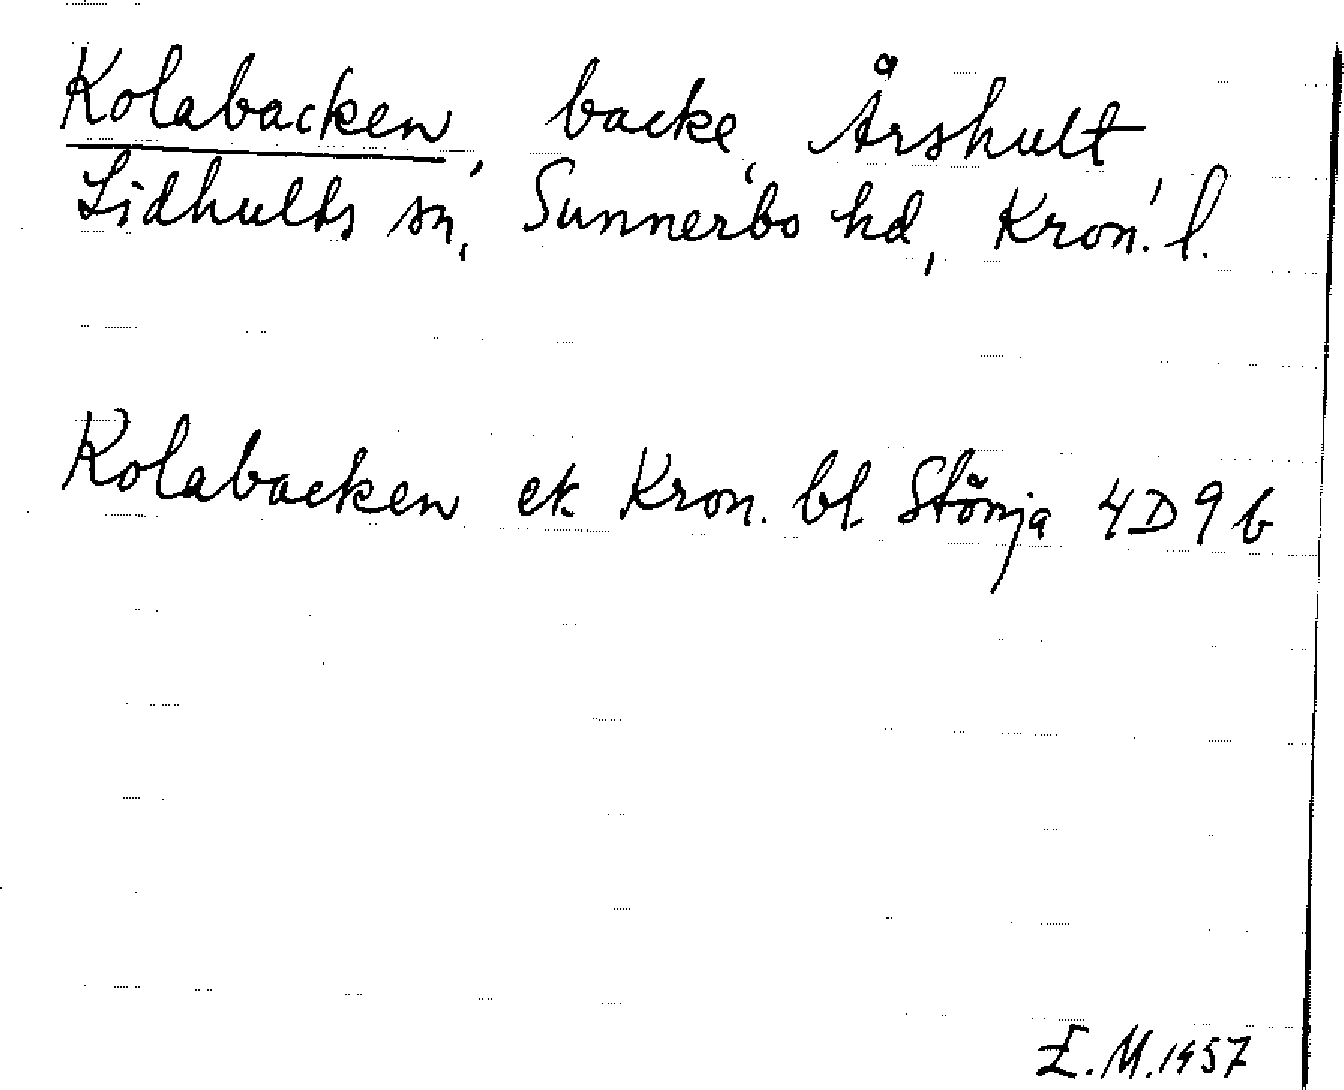 Kolabacken, backe, Årshult,
Lidhults sn, Sunnerbo hd, Kron. l.
Kolabacken ek. Kron. bl. Stönja 4D9b
E.M. 1957